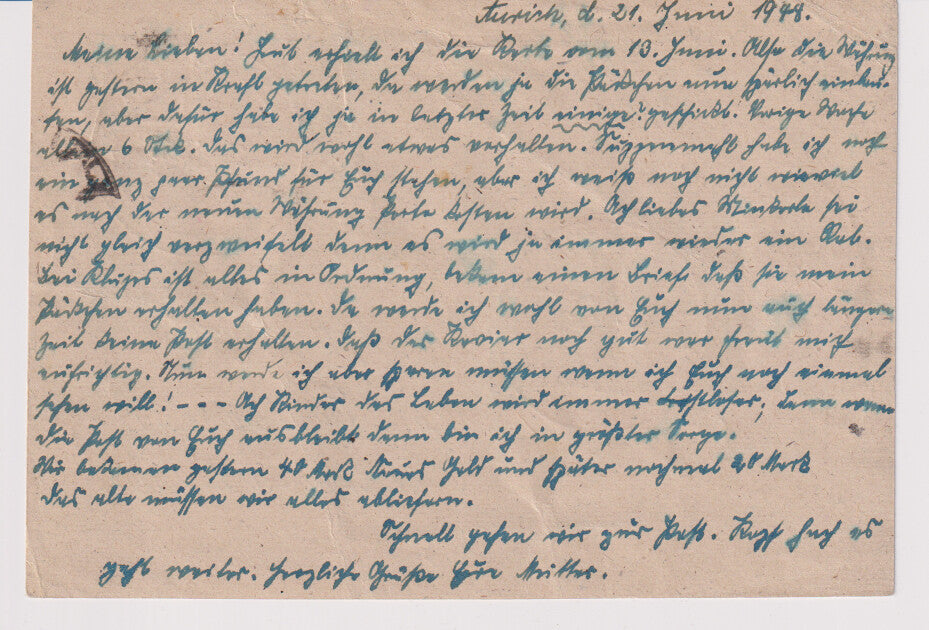 Aurich, d. 21. Juni 1948.
Meine Lieben! Heut erhielt ich die Karte vom 13. Juni. Also die Währung
ist gestern in Kraft getreten, da werden ja die Päckchen nun spärlich eintref-
fen, aber dafür habe ich ja in letzter Zeit einige! geschickt. Vorige Woche
6 Stck. das wird wohl etwas vorhalten. Suppenmehl habe ich noch
ein paar Pfund für Euch stehen, aber ich weiß noch nicht wieviel
es nach der neuen Währung Porto kosten wird. Ach liebes sei
nicht gleich verzweifelt denn es wird ja immer wieder ein Rat.
Bei ist alles in Ordnung, bekam einen Brief daß sie mein
Päckchen erhalten haben. Da werde ich wohl von Euch nun auch längere
Zeit keine Post erhalten. Daß der noch gut war freut mich
aufrichtig. Nun werde ich aber sparen müssen wenn ich Euch noch einmal
sehen will! - - - Ach Kinder das Leben wird immer trostloser, denn wenn
die Post von Euch ausbleibt dann bin ich in größter Sorge.
Wir bekamen gestern 40 Mark Geld und später nochmal 20 Mark
das alte müssen wir alles abliefern.
Schnell gehen wir zur Post. Kopf hoch es
geht weiter. Herzliche Grüße Eure Mutter.